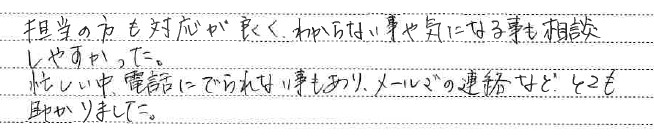 担当の方も対応が良く、わからない事や気になる事も相談
しやすかった。
忙しい中、電話にでられない事もあり、メールでの連絡など とても
助かりました。